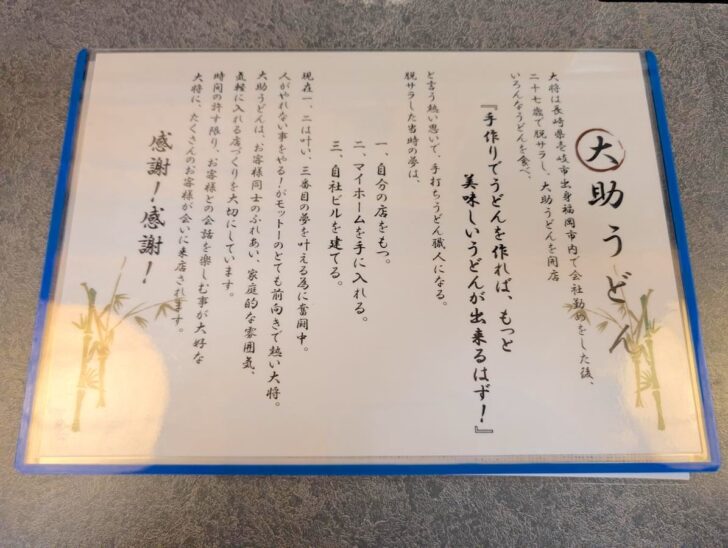 大助うどん
大将は長崎県壱岐市出身福岡市内で会社勤めをした後、
二十七歳で脱サラし、大助うどんを開店
いろんなうどんを食べ、
『手作りでうどんを作れば、もっと
美味しいうどんが出来るはず！』
と言う熱い思いで、手打ちうどん職人になる。
脱サラした当時の夢は、
一、自分の店をもつ。
二、マイホームを手に入れる。
三、自社ビルを建てる。
現在一、二は叶い、三番目の夢を叶える為に奮闘中。
人がやれない事をやる！がモットーのとても前向きで熱い大将。
大助うどんは、お客様同士のふれあい、家庭的な雰囲気、
気軽に入れる店づくりを大切にしています。
時間の許す限り、お客様との会話を楽しむ事が大好な
大将に、たくさんのお客様が会いに来店されます。
感謝！感謝！